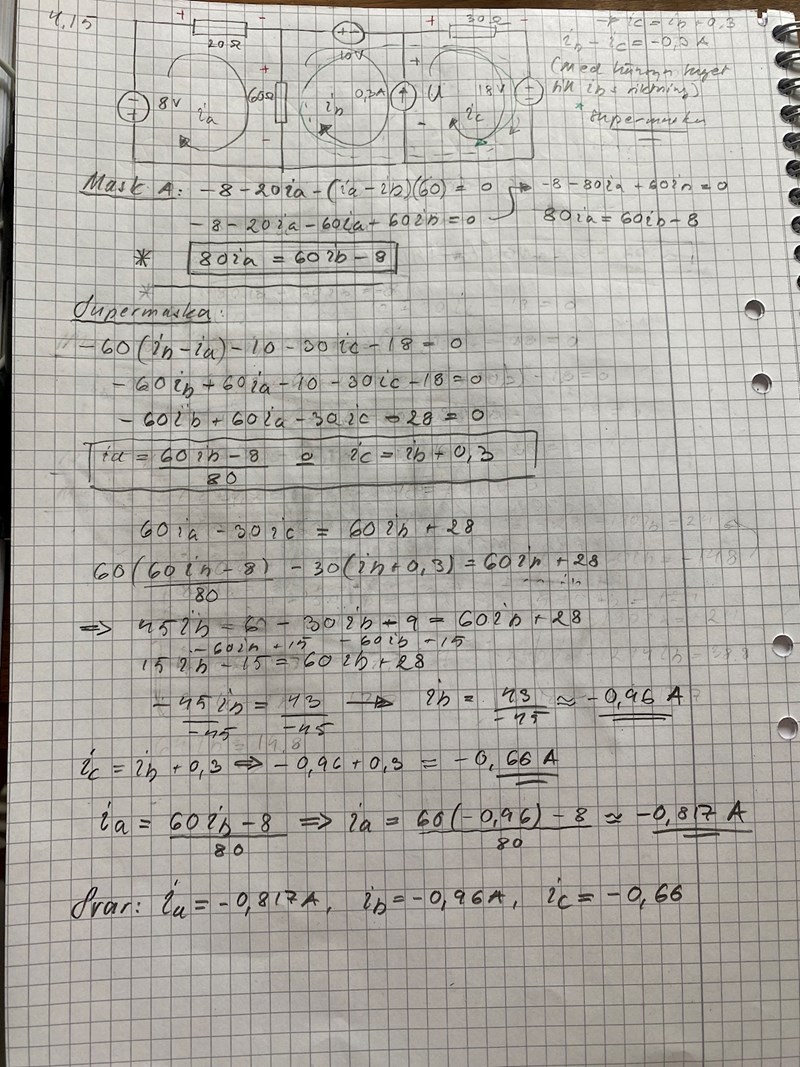 4.15
+ - + - + 30Ω -
20Ω 10V
→ ic = ib + 0,3
ib - ic = -0,3 A
(Med hänsyn taget
till ib:s riktning)
* supermaska
8V ia + 60Ω - ib 0,3A + U - ic 18V
Mask A: -8-20ia-(ia-ib)(60) = 0 → -8-80ia+60ib=0
-8-20ia-60ia+60ib=0 80ia=60ib-8
* 80ia = 60ib-8
Supermaska:
-60(ib-ia)-10-30ic-18=0
-60ib+60ia-10-30ic-18=0
-60ib+60ia-30ic-28=0
ia = 60ib-8 / 80 o ic=ib+0,3
60ia-30ic = 60ib+28
60(60ib-8 / 80) -30(ib+0,3)=60ib+28
⇒ 45ib-6-30ib-9=60ib+28
-60ib+15 -60ib+15
15ib-15=60ib+28
-45ib / -45 = 43 / -45 → ib = 43 / -45 ≈ -0,96 A
ic=ib+0,3 ⇒ -0,96+0,3 = -0,66 A
ia = 60ib-8 / 80 ⇒ ia = 60(-0,96)-8 / 80 ≈ -0,817 A
Svar: ia=-0,817A, ib=-0,96A, ic=-0,66